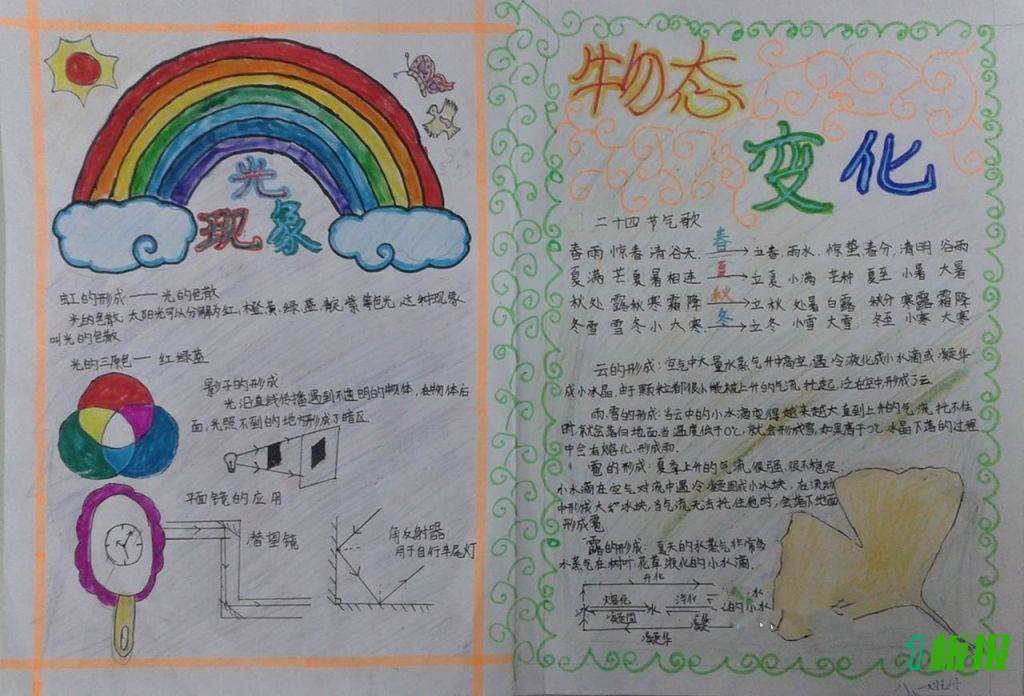 光
现象
虹的形成——光的色散
光的色散:太阳光可以分解为红、橙、黄、绿、蓝、靛、紫等色光,这种现象
叫光的色散
光的三原色——红绿蓝
影子的形成
光沿直线传播遇到不透明的物体,在物体后
面,光照不到的地方形成了暗区
平面镜的应用
潜望镜
角反射器
用于自行车尾灯
物态
变化
二十四节气歌
春雨惊春清谷天 春 立春 雨水、惊蛰、春分、清明 谷雨
夏满芒夏暑相连 夏 立夏 小满 芒种 夏至 小暑 大暑
秋处露秋寒霜降 秋 立秋 处暑 白露 秋分 寒露 霜降
冬雪雪冬小大寒 冬 立冬 小雪 大雪 冬至 小寒 大寒
云的形成:空气中大量水蒸气升中高空,遇冷液化成小水滴或凝华
成小冰晶,由于颗粒都很小,被上升的气流托起,泛在空中形成了云
雨,雪的形成:当云中的小水滴变得越来越大直到上升的气流托不住
时,就会落向地面当温度低于0℃,就会形成雪,如果高于0℃冰晶下落的过程
中会有熔化,形成雨.
雹的形成:夏季上升的气流很强,很不稳定,
小水滴在空气对流中遇冷凝固成小冰块,在流动
中形成大冰块,当气流无法托住他时,会落下地面
形成雹
露的形成:夏天的水蒸气非常多
水蒸气在树叶,花草液化的小水滴.
升华
熔化 汽化
水
凝固
的小水
凝华
板报